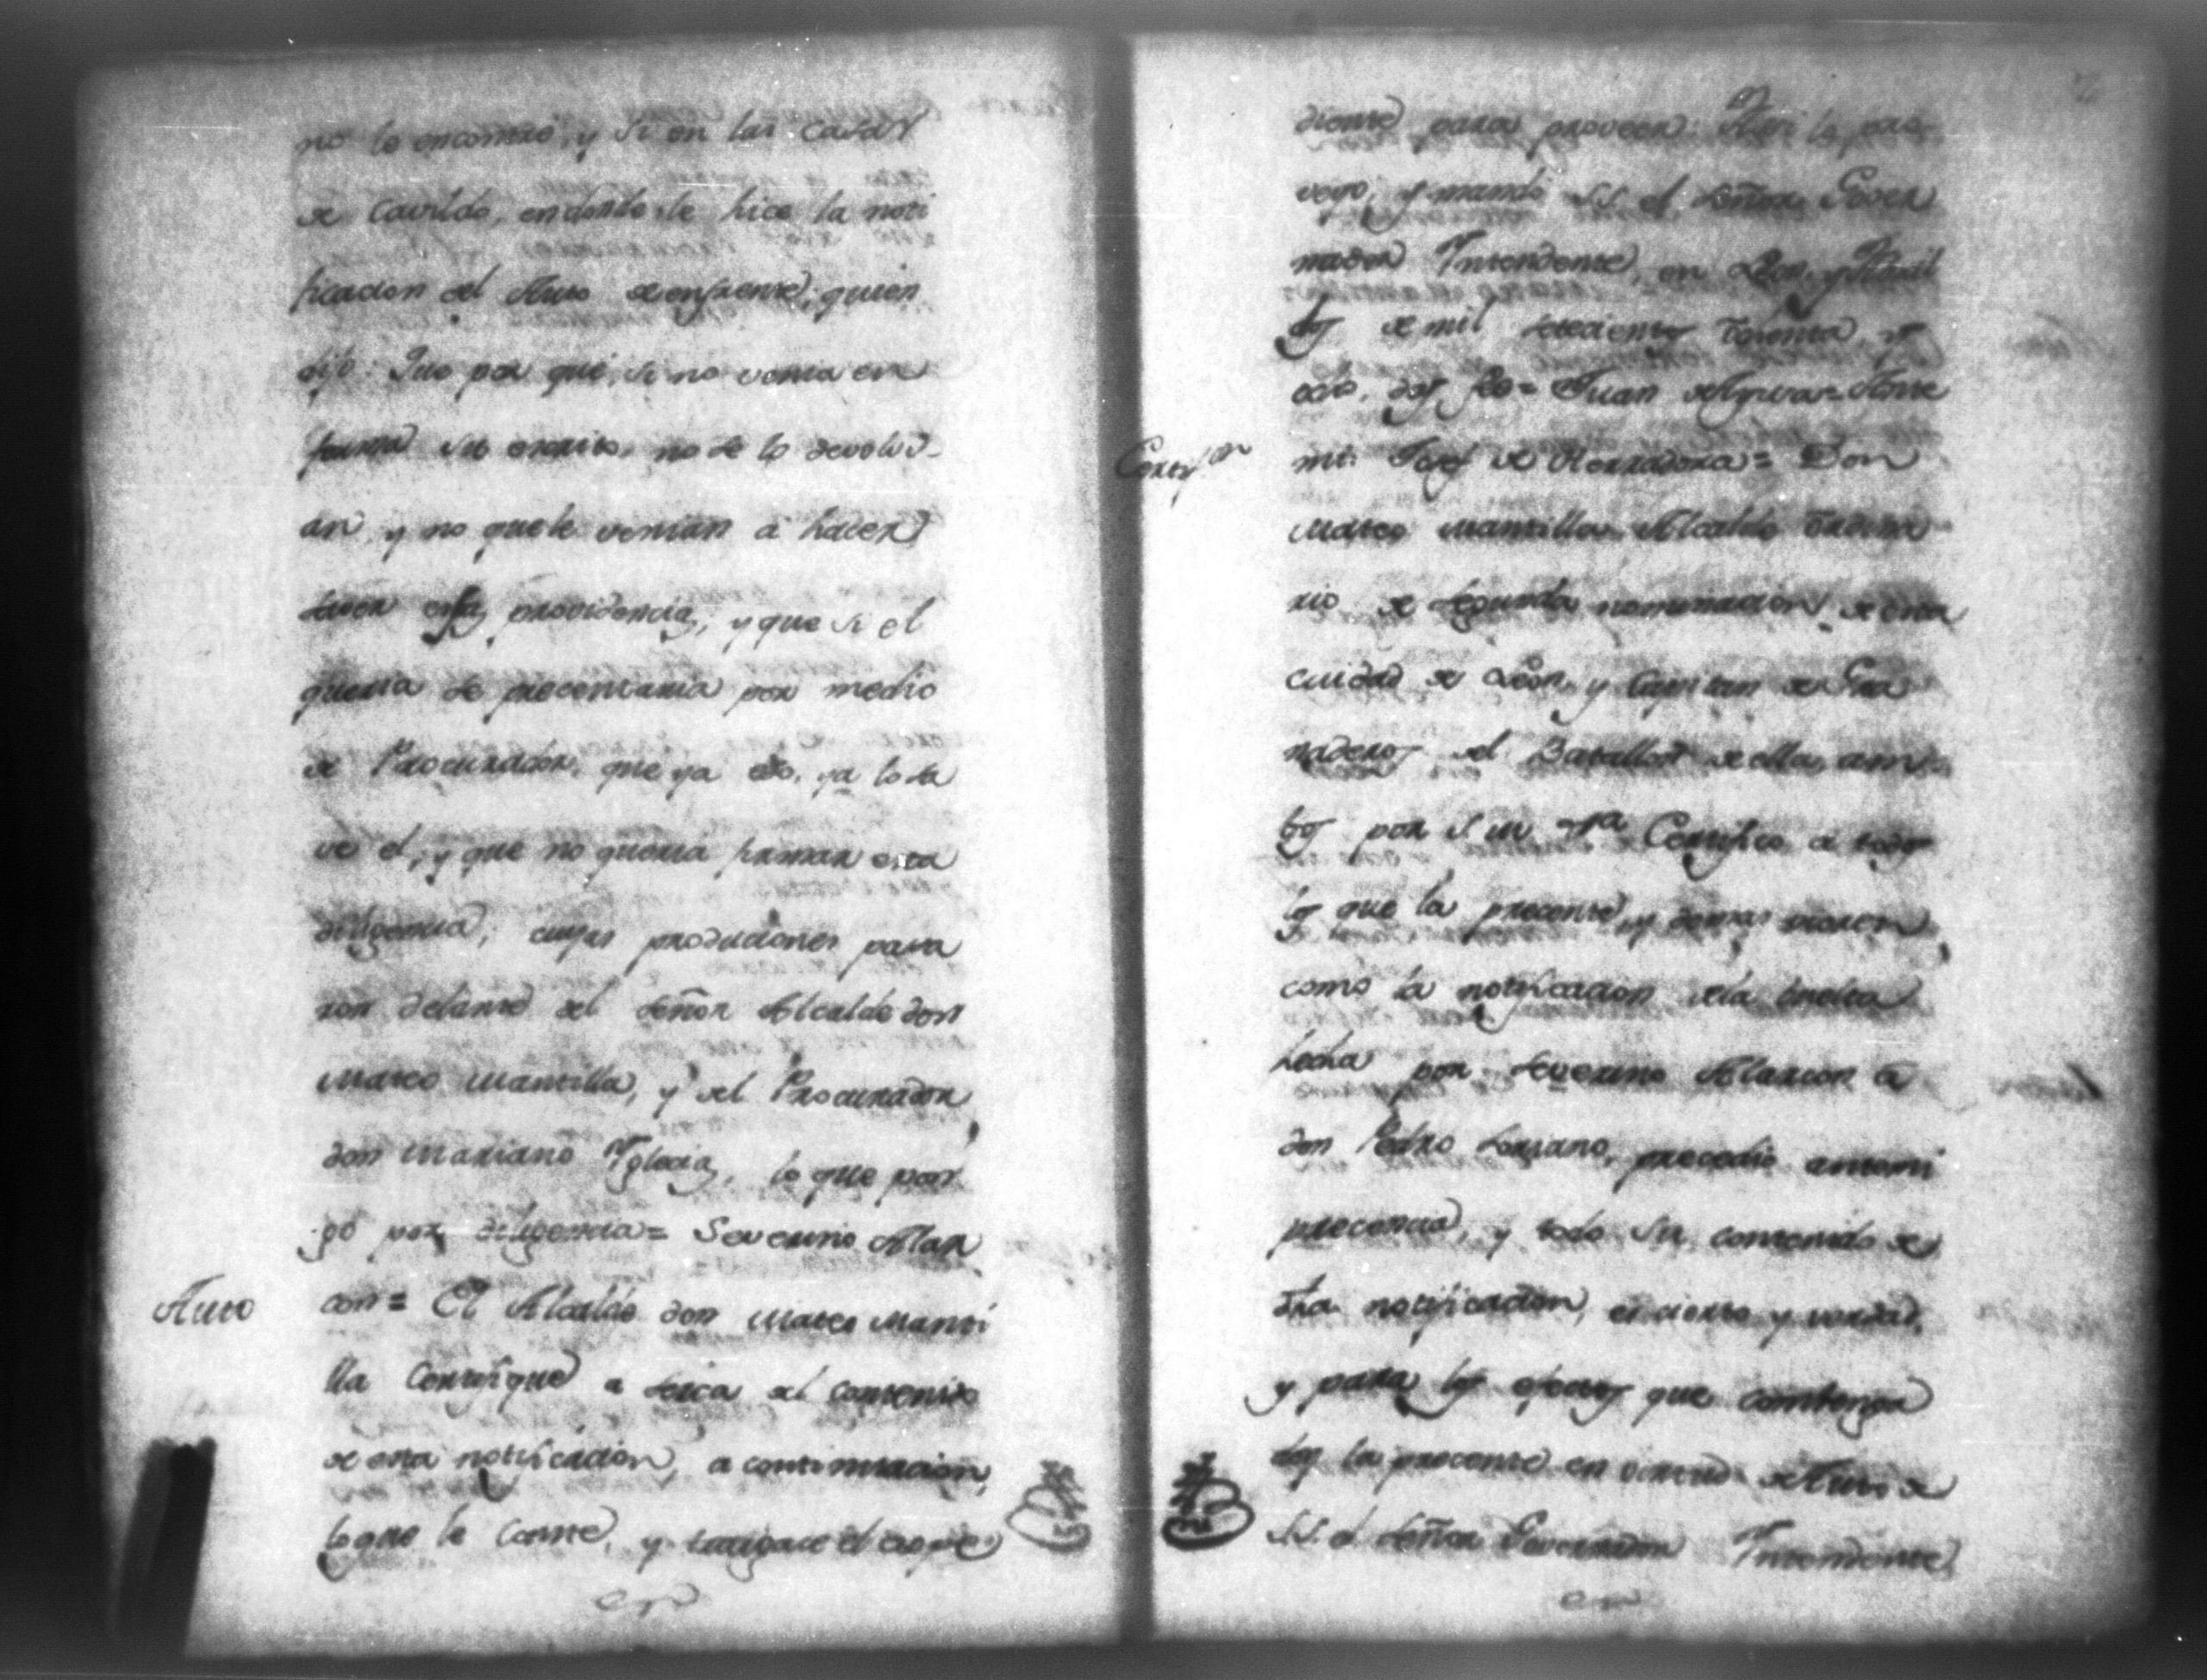 no lo encontré, y si en las casas
de Cavildo, en donde le hice la noti
ficacion del Auto de enfrente, quien
dijo: Que por que, si no venia en
forma su escrito, no se lo devolvi-
an, y no que le venian a hacer
saver estas providencias, y que si el
queria se precentaria por medio
de Procurador, que ya eso, ya lo sa
ve el, y que no queria firmar esta
diligencia, cuyas producciones pasa
ron delante del señor Alcalde don
Mateo Mantilla, y del Procurador
don Mariano Yglecias, lo que pon
go por diligencia = Severino Alar
Auto
con = El Alcalde don Mateo Manti
lla Certifique a serca del contenido
de esta notificacion, a continuacion,
lo que le Conste, y traigace el expe
diente para proveer: Asi lo pro
veyo, y mando S.S. el señor Gover
nador Yntendente, en Leon, y Abril
dos de mil setecientos ochenta, y
ocho, doy fee = Juan de Ayssa = Ante
Certif.on
mi: Josef de Herradora = Don
Mateo Mantilla, Alcalde Ordina
rio de segunda nominacion, de esta
ciudad de Leon, y Capitan de Gra
naderos del Batallon de ella, am
bos por S.M. Certifico a todos
los que la precente, y demas vieren,
como la notificacion de la buelta
hecha por Severino Alarcon a
don Pedro Soriano, precedio ante mi
precencia, y todo su contenido de
dha notificacion, es cierto y verdad,
y para los efectos que combenga
doy la precente en virtud de Auto de
S.S. el señor Governador Yntendente